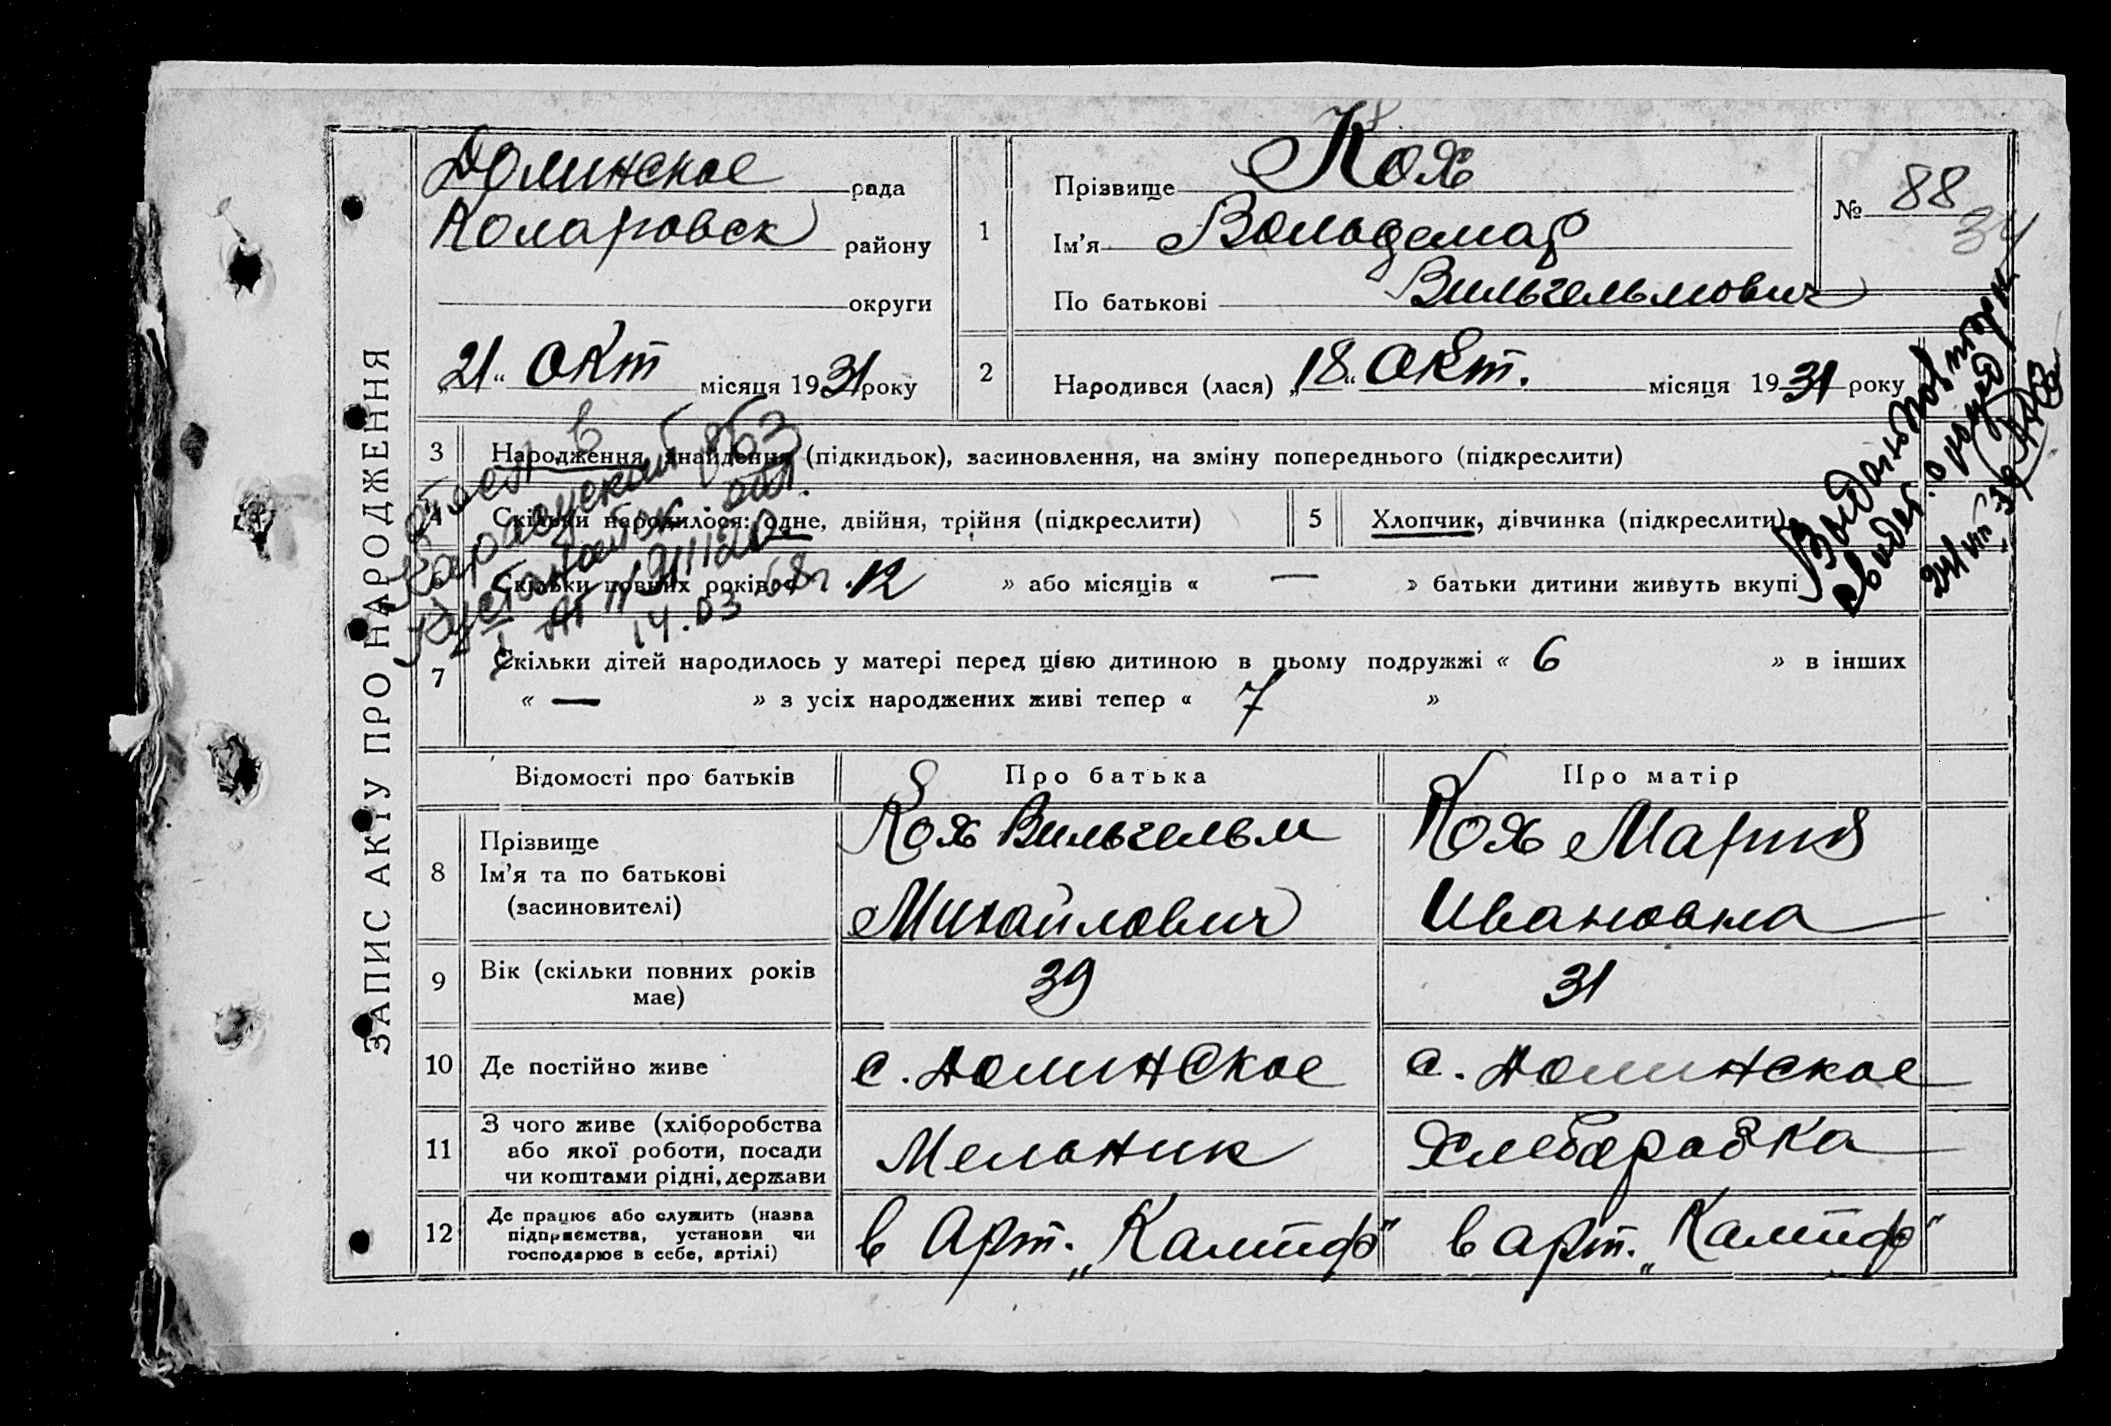 ЗАПИС АКТУ ПРО НАРОДЖЕННЯ
Долинское рада
Коларовск району
округи
„21“ окт місяця 1931 року
1
Прізвище Кох
Ім'я Вольдемар
По батькові Вильгельмович
№ 88
34
2
Народився (лася) „18“ окт. місяця 1931 року
3 Народження, знайдення (підкидьок), засиновлення, на зміну попереднього (підкреслити)
4 Скільки народилося: одне, двійня, трійня (підкреслити)
5 Хлопчик, дівчинка (підкреслити)
6 Скільки повних років « 12 » або місяців « — » батьки дитини живуть вкупі
7 Скільки дітей народилось у матері перед цією дитиною в цьому подружжі « 6 » в інших
« — » з усіх народжених живі тепер « 7 »
в
Карасуский
Кустанайск обл.
14.03 68г
Выдано повторн
свидет. о рожд
Відомості про батьків Про батька Про матір
8 Прізвище
Ім'я та по батькові
(засиновителі)
Кох Вильгельм
Михайлович
Кох Мария
Ивановна
9 Вік (скільки повних років
має)
39
31
10 Де постійно живе с. Долинское с. Долинское
11 З чого живе (хліборобства
або якої роботи, посади
чи коштами рідні, держави
Мельник
Хлеборобка
12 Де працює або служить (назва
підприємства, установи чи
господарює в себе, артілі)
в Арт. „Кампф“
в арт. „Кампф“